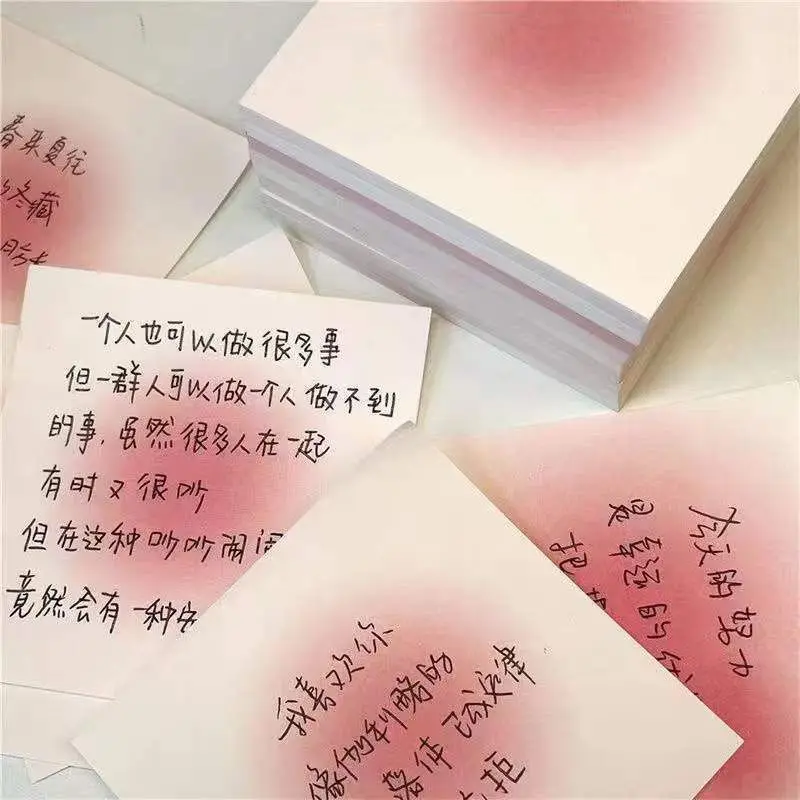 春来夏往
冬藏
一个人也可以做很多事
但一群人可以做一个人做不到
的事,虽然很多人在一起
有时又很吵
但在这种吵吵闹闹
竟然会有一种安
我喜欢你
像伽利略的
落体 
定律
拒
今天的努力
是幸运的伏
把握